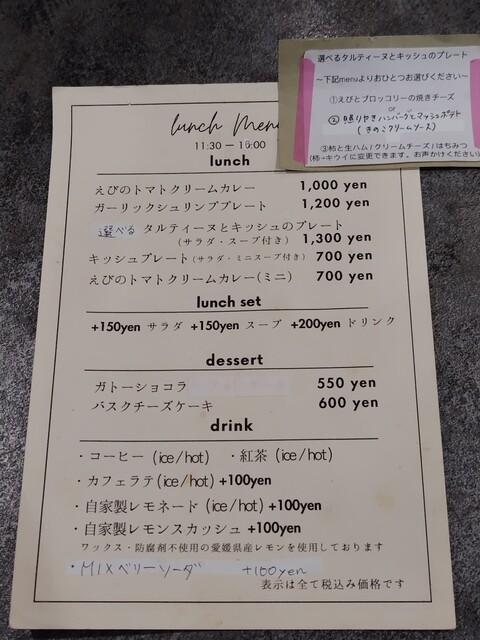 lunch Menu
11:30 - 15:00
lunch
えびのトマトクリームカレー 1,000 yen
ガーリックシュリンププレート 1,200 yen
選べる タルティーヌとキッシュのプレート
(サラダ・スープ付き) 1,300 yen
キッシュプレート(サラダ・ミニスープ付き) 700 yen
えびのトマトクリームカレー(ミニ) 700 yen
lunch set
+150yen サラダ +150yen スープ +200yen ドリンク
dessert
ガトーショコラ 550 yen
バスクチーズケーキ 600 yen
drink
・コーヒー (ice/hot) ・紅茶 (ice/hot)
・カフェラテ(ice/hot) +100yen
・自家製レモネード (ice/hot) +100yen
・自家製レモンスカッシュ +100yen
ワックス・防腐剤不使用の愛媛県産レモンを使用しております
・MIXベリーソーダ +100yen
表示は全て税込み価格です
選べるタルティーヌとキッシュのプレート
〜下記menuよりおひとつお選びください〜
①えびとブロッコリーの焼きチーズ
or
②照りやきハンバーグとマッシュポテト
(きのこクリームソース)
③柿と生ハム/クリームチーズ/はちみつ
(柿→キウイに変更できます。お声かけください)